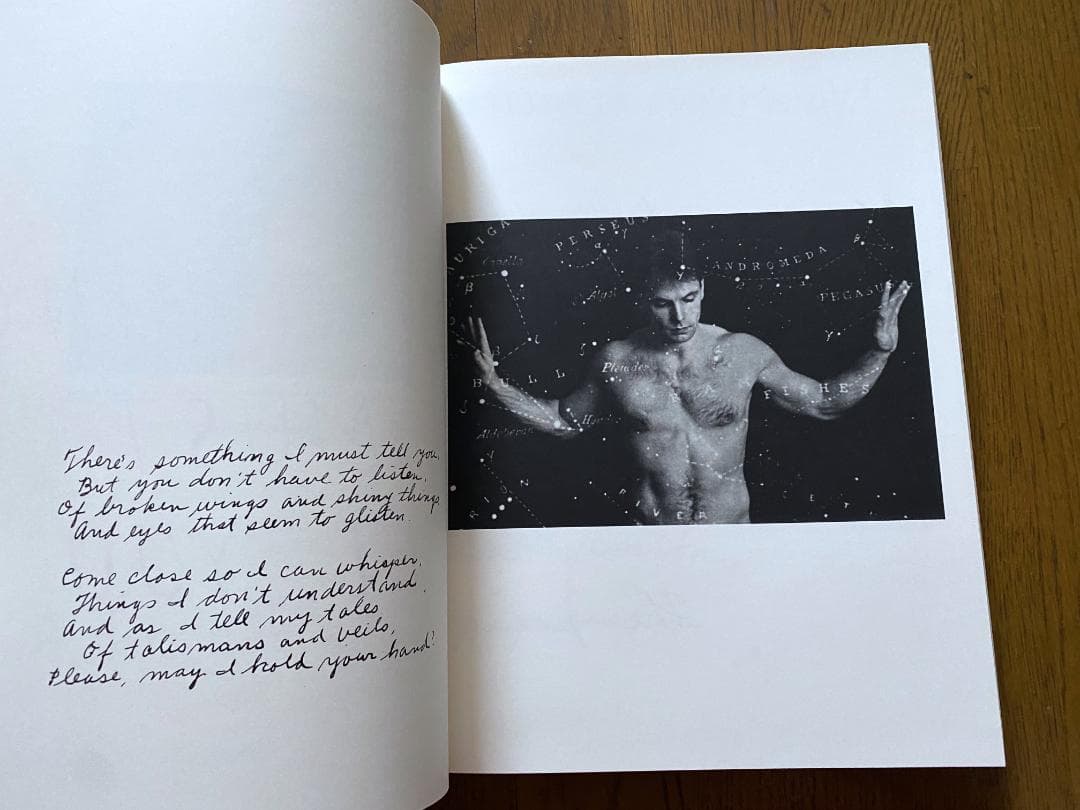 There's something I must tell you,
But you don't have to listen,
Of broken wings and shiny things
And eyes that seem to glisten.
Come close so I can whisper,
Things I don't understand,
And as I tell my tales
Of talismans and veils,
Please, may I hold your hand?
URIGA
PERSEUS
Capella
ANDROMEDA
Algol
PEGASUS
β
γ
γ
BULL
Pleiades
FISHES
Aldebaran
RIVER
CET